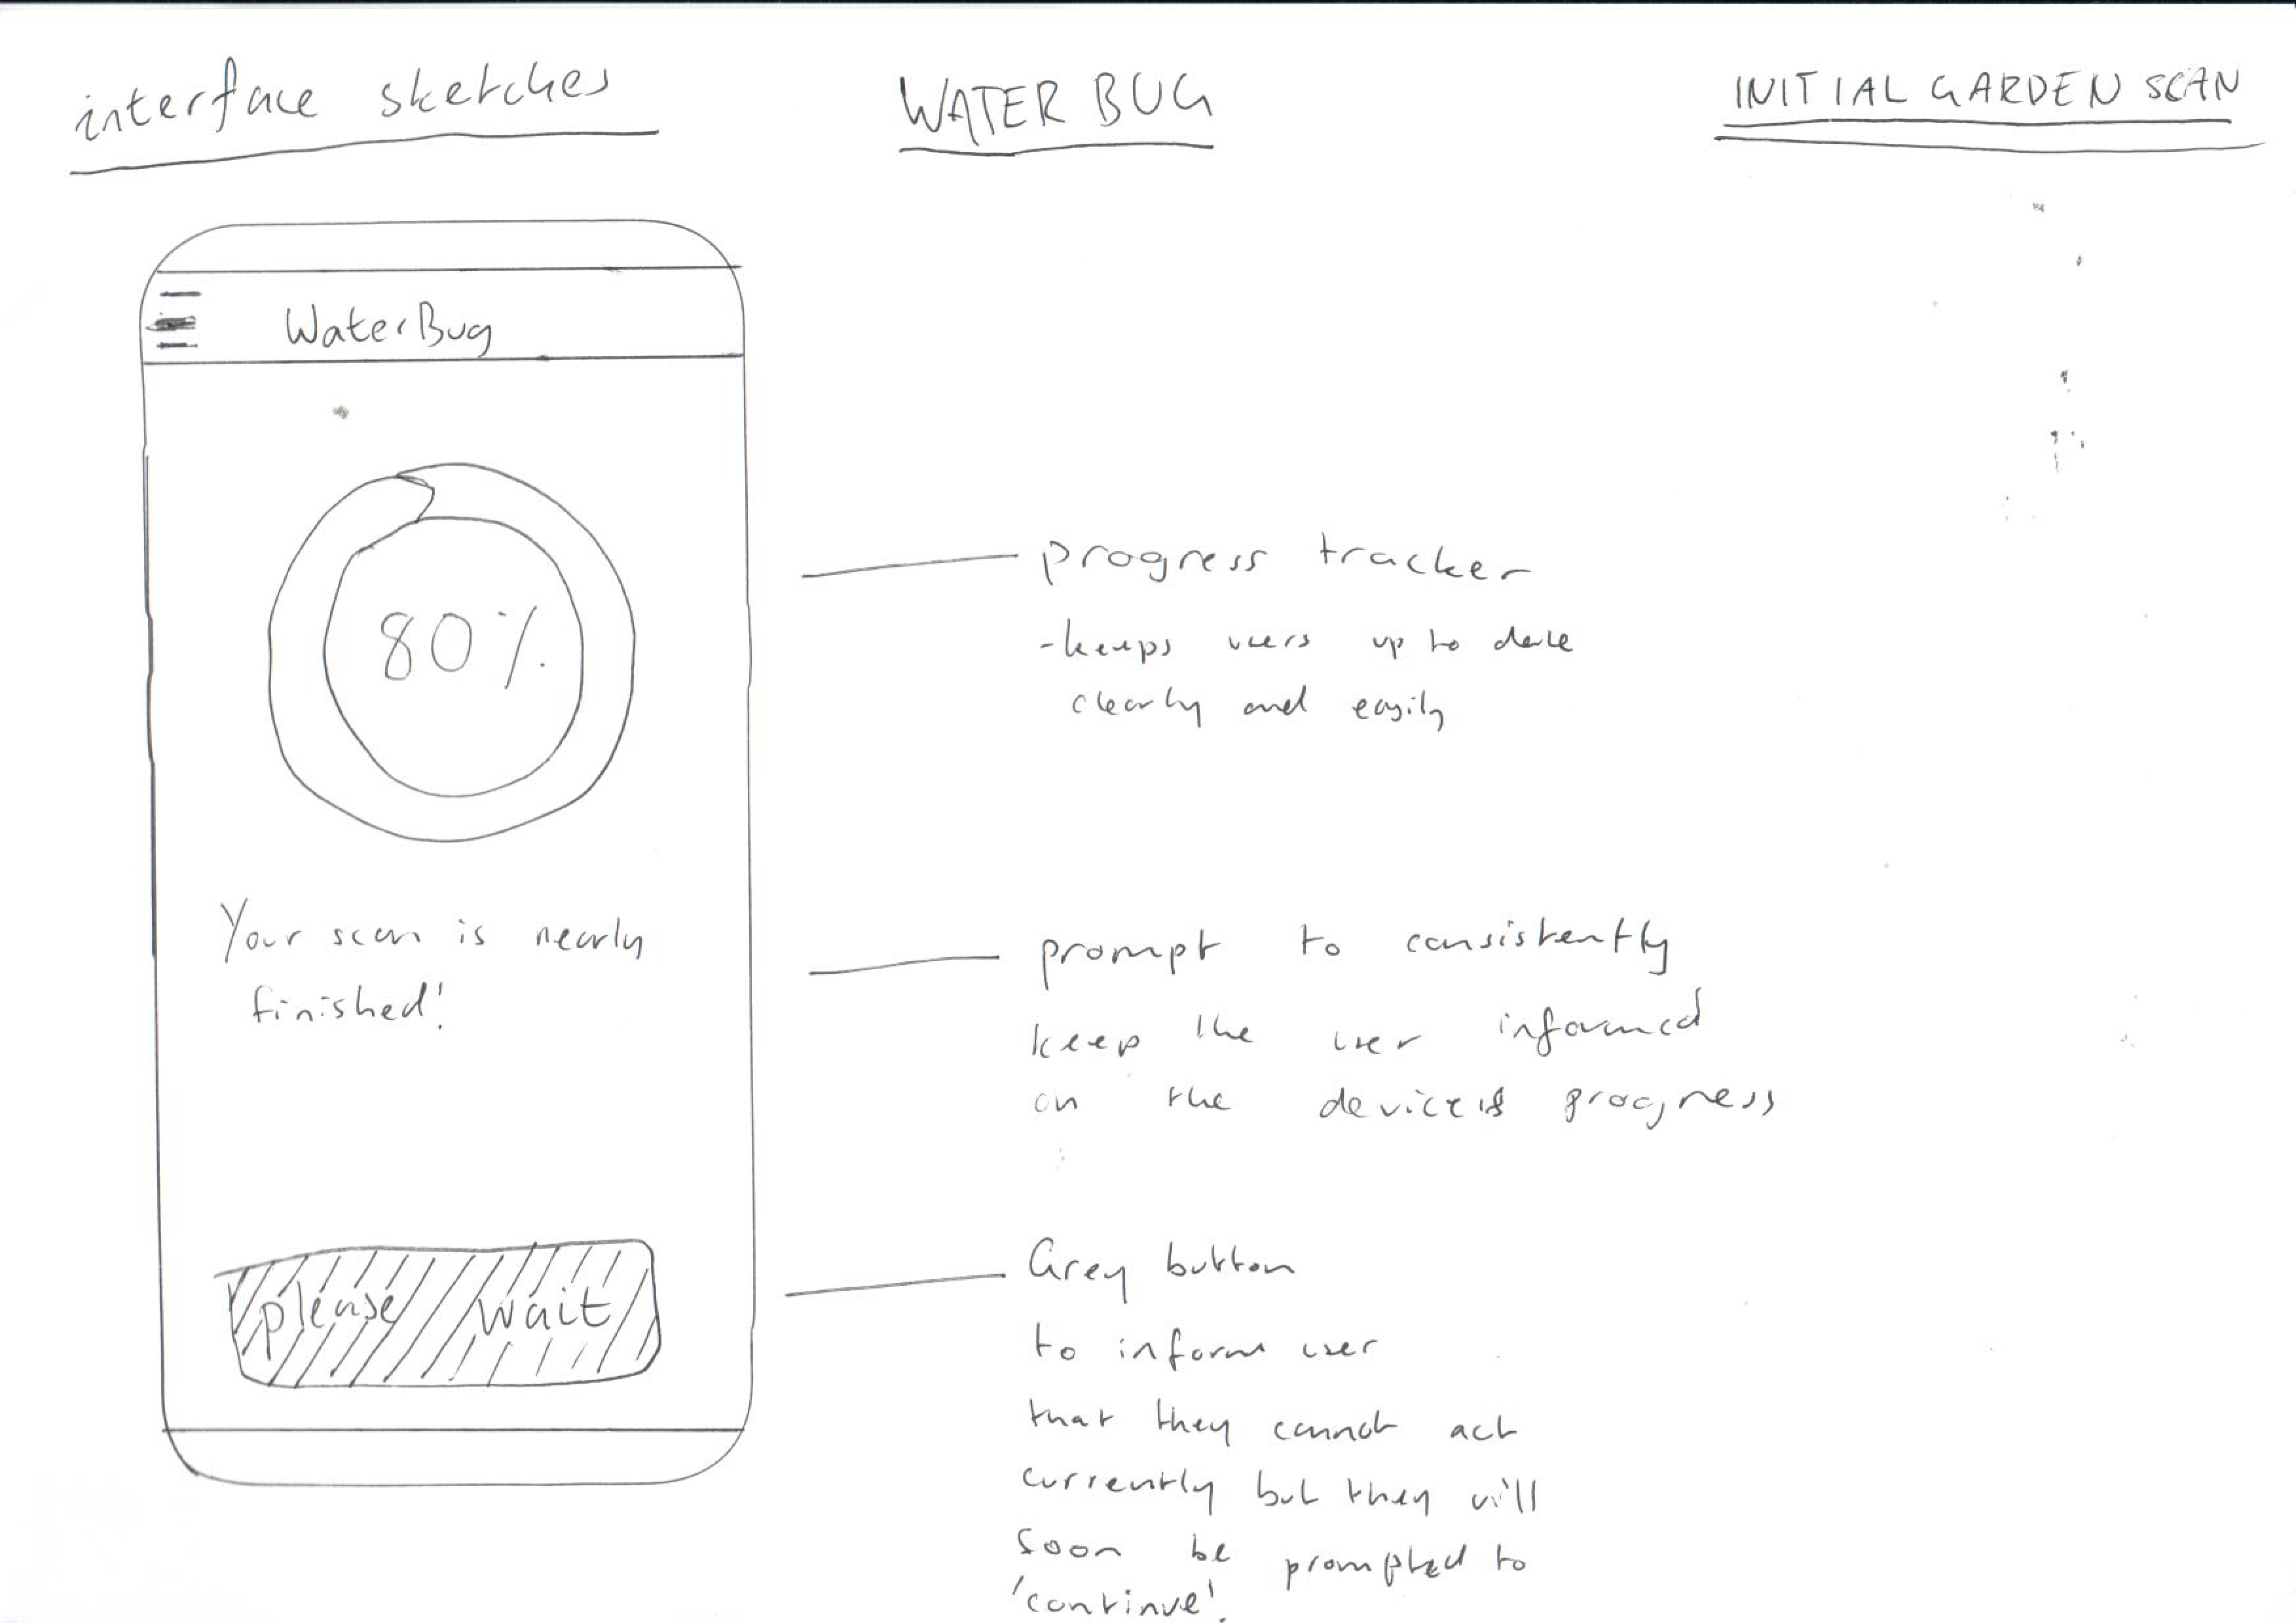 interface sketches
WATER BUG
INITIAL GARDEN SCAN
WaterBug
80%
Your scan is nearly
finished!
please wait
progress tracker
-keeps users up to date
clearly and easily
prompt to consistently
keep the user informed
on the device's progress
Grey button
to inform user
that they cannot act
currently but they will
soon be prompted to
'continue'.